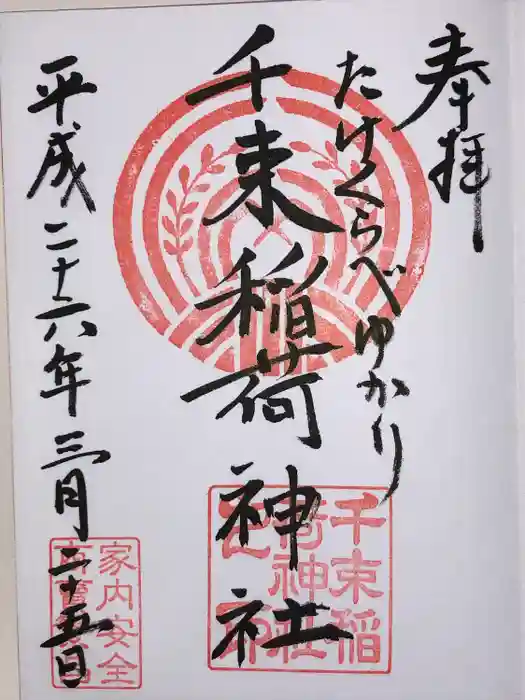 奉拝
たけくらべゆかり
千束稲荷神社
平成二十六年三月二十五日
千束稲
荷神社
之印
家内安全
商売繁昌